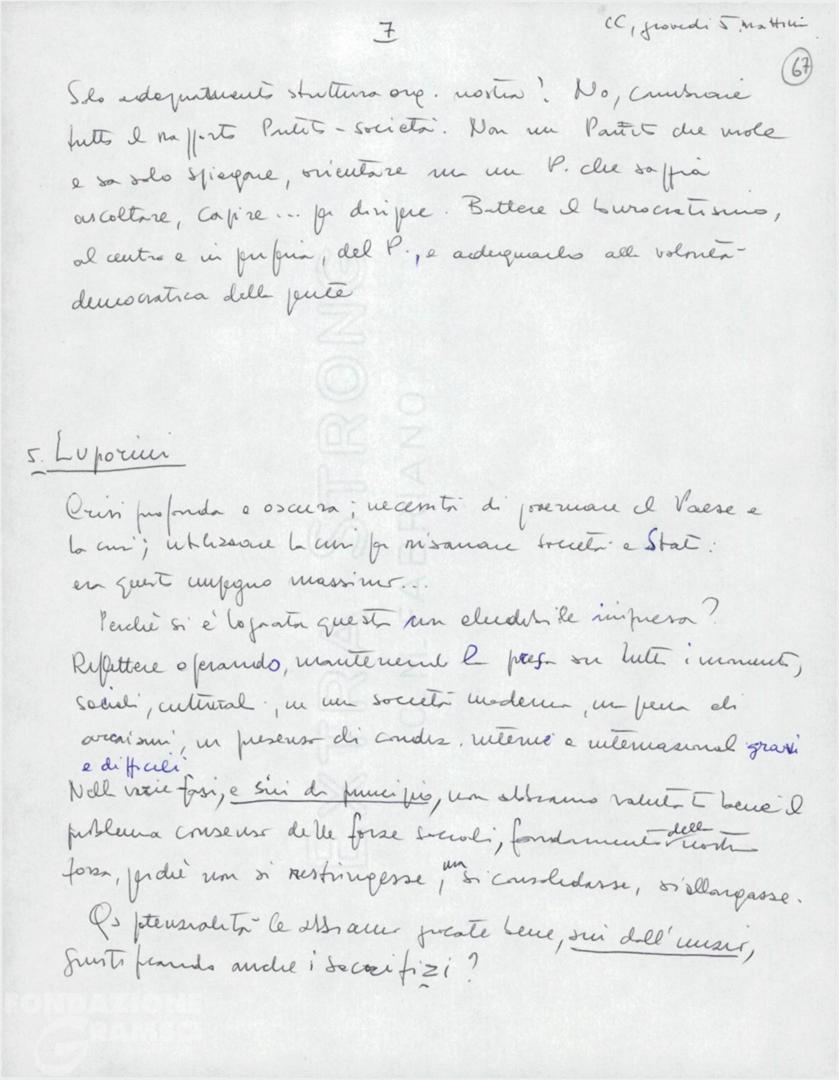 7
CC, giovedì 5, mattina
67
Solo adeguamento struttura org. nostra? No, cambiare
tutto il rapporto Partito-società. Non un Partito che vuole
e sa solo spiegare, orientare ma un P. che sappia
ascoltare, capire... per dirigere. Battere il burocratismo,
al centro e in periferia, del P., e adeguarlo alla volontà
democratica della gente
5. Luporini
Crisi profonda e oscura; necessità di governare il Paese e
la crisi; utilizzare la crisi per risanare società e Stato:
era questo impegno massimo...
Perché si è logorata questa non eludibile impresa?
Riflettere operando, mantenendo la presa su tutti i momenti,
sociali, culturali, in una società moderna, piena di
arcaismi, in presenza di condiz. interne e internazionali gravi
e difficili.
Nelle varie fasi, e sin da principio, non abbiamo valutato bene il
problema consenso delle forze sociali, fondamento della nostra
forza, perché non si restringesse, ma si consolidasse, si allargasse.
Qs potenzialità le abbiamo giocate bene, sin dall'inizio,
giustificando anche i sacrifizi?
EXTRA STRONG
FABRIANO
FONDAZIONE
GRAMSCI